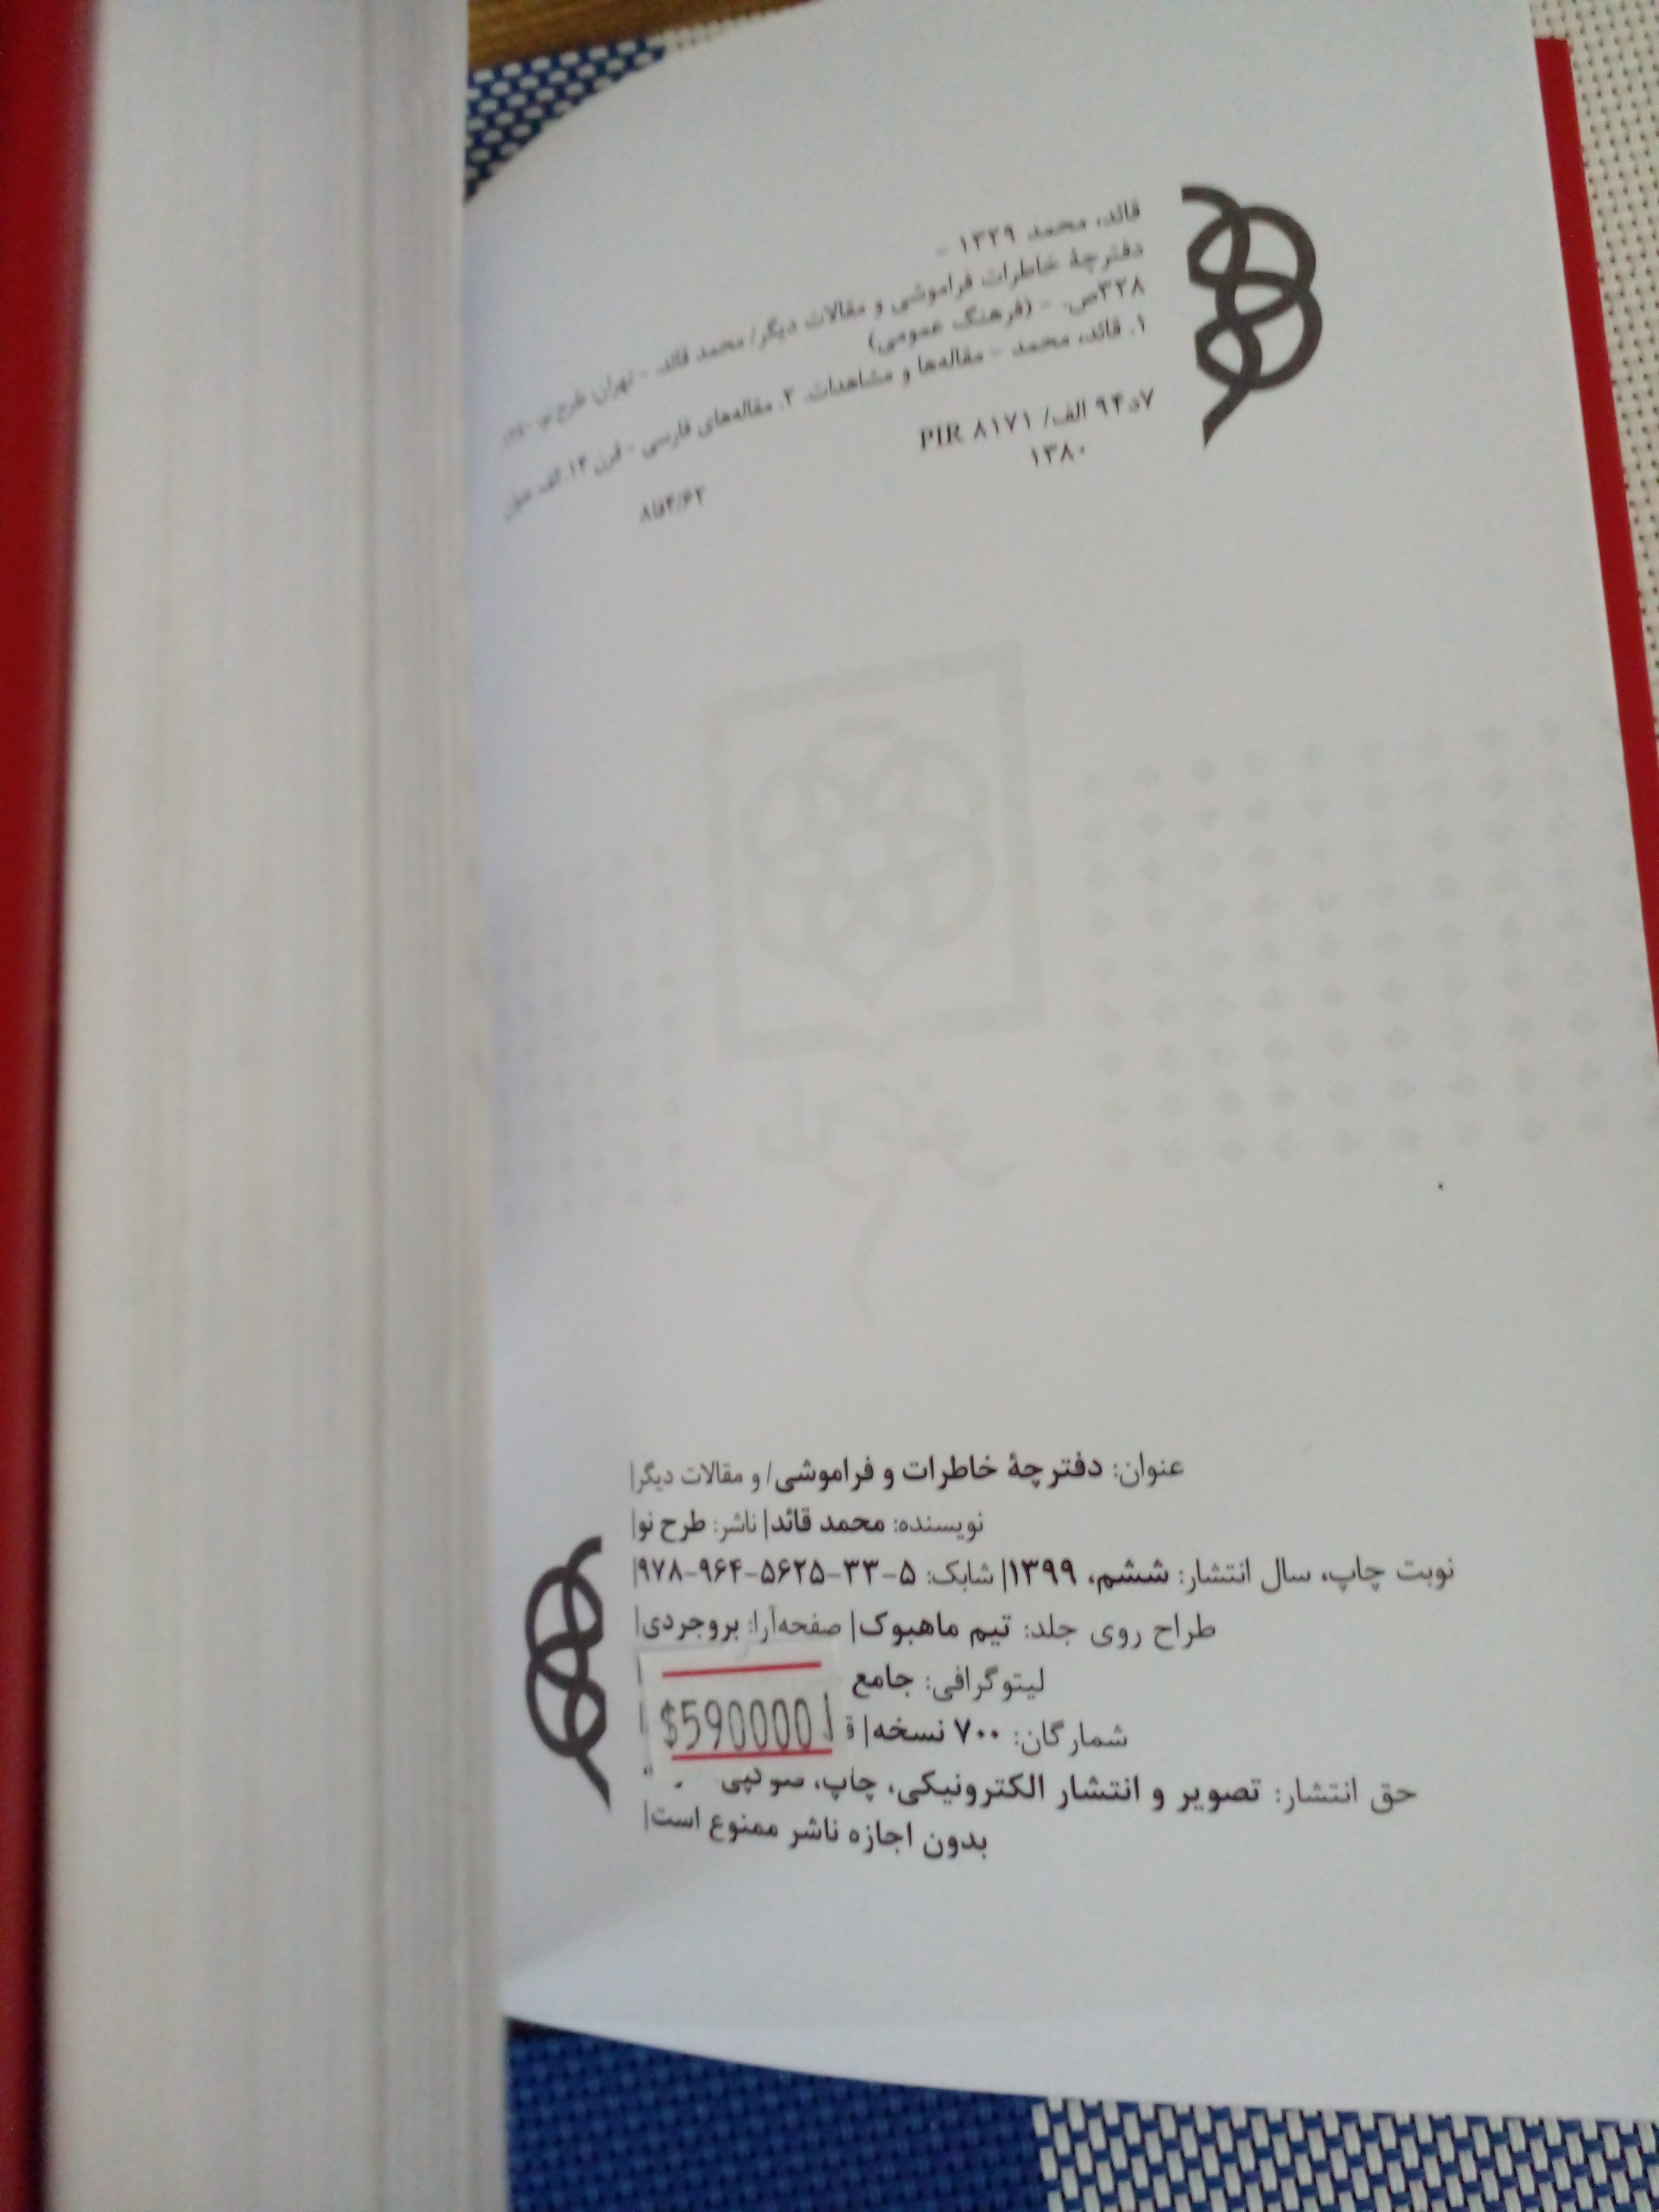 قائد، محمد ۱۳۲۹ -
دفترچهٔ خاطرات فراموشی و مقالات دیگر/ محمد قائد. - تهران: طرح نو،
۳۲۸ص. - (فرهنگ عمومی)
۱. قائد، محمد - مقاله‌ها و مشاهدات. ۲. مقاله‌های فارسی - قرن ۱۴. الف. عنوان
PIR ۸۱۷۱ /الف ۹۴د۷
۱۳۸۰
۸فا۴/۶۲
عنوان: دفترچهٔ خاطرات و فراموشی/ و مقالات دیگر|
نویسنده: محمد قائد| ناشر: طرح نو|
نوبت چاپ، سال انتشار: ششم، ۱۳۹۹| شابک: ۵-۳۳-۵۶۲۵-۹۶۴-۹۷۸|
طراح روی جلد: تیم ماهبوک| صفحه‌آرا: بروجردی|
لیتوگرافی: جامع
شمارگان: ۷۰۰ نسخه| ق
$590000
حق انتشار: تصویر و انتشار الکترونیکی، چاپ،
بدون اجازه ناشر ممنوع است|